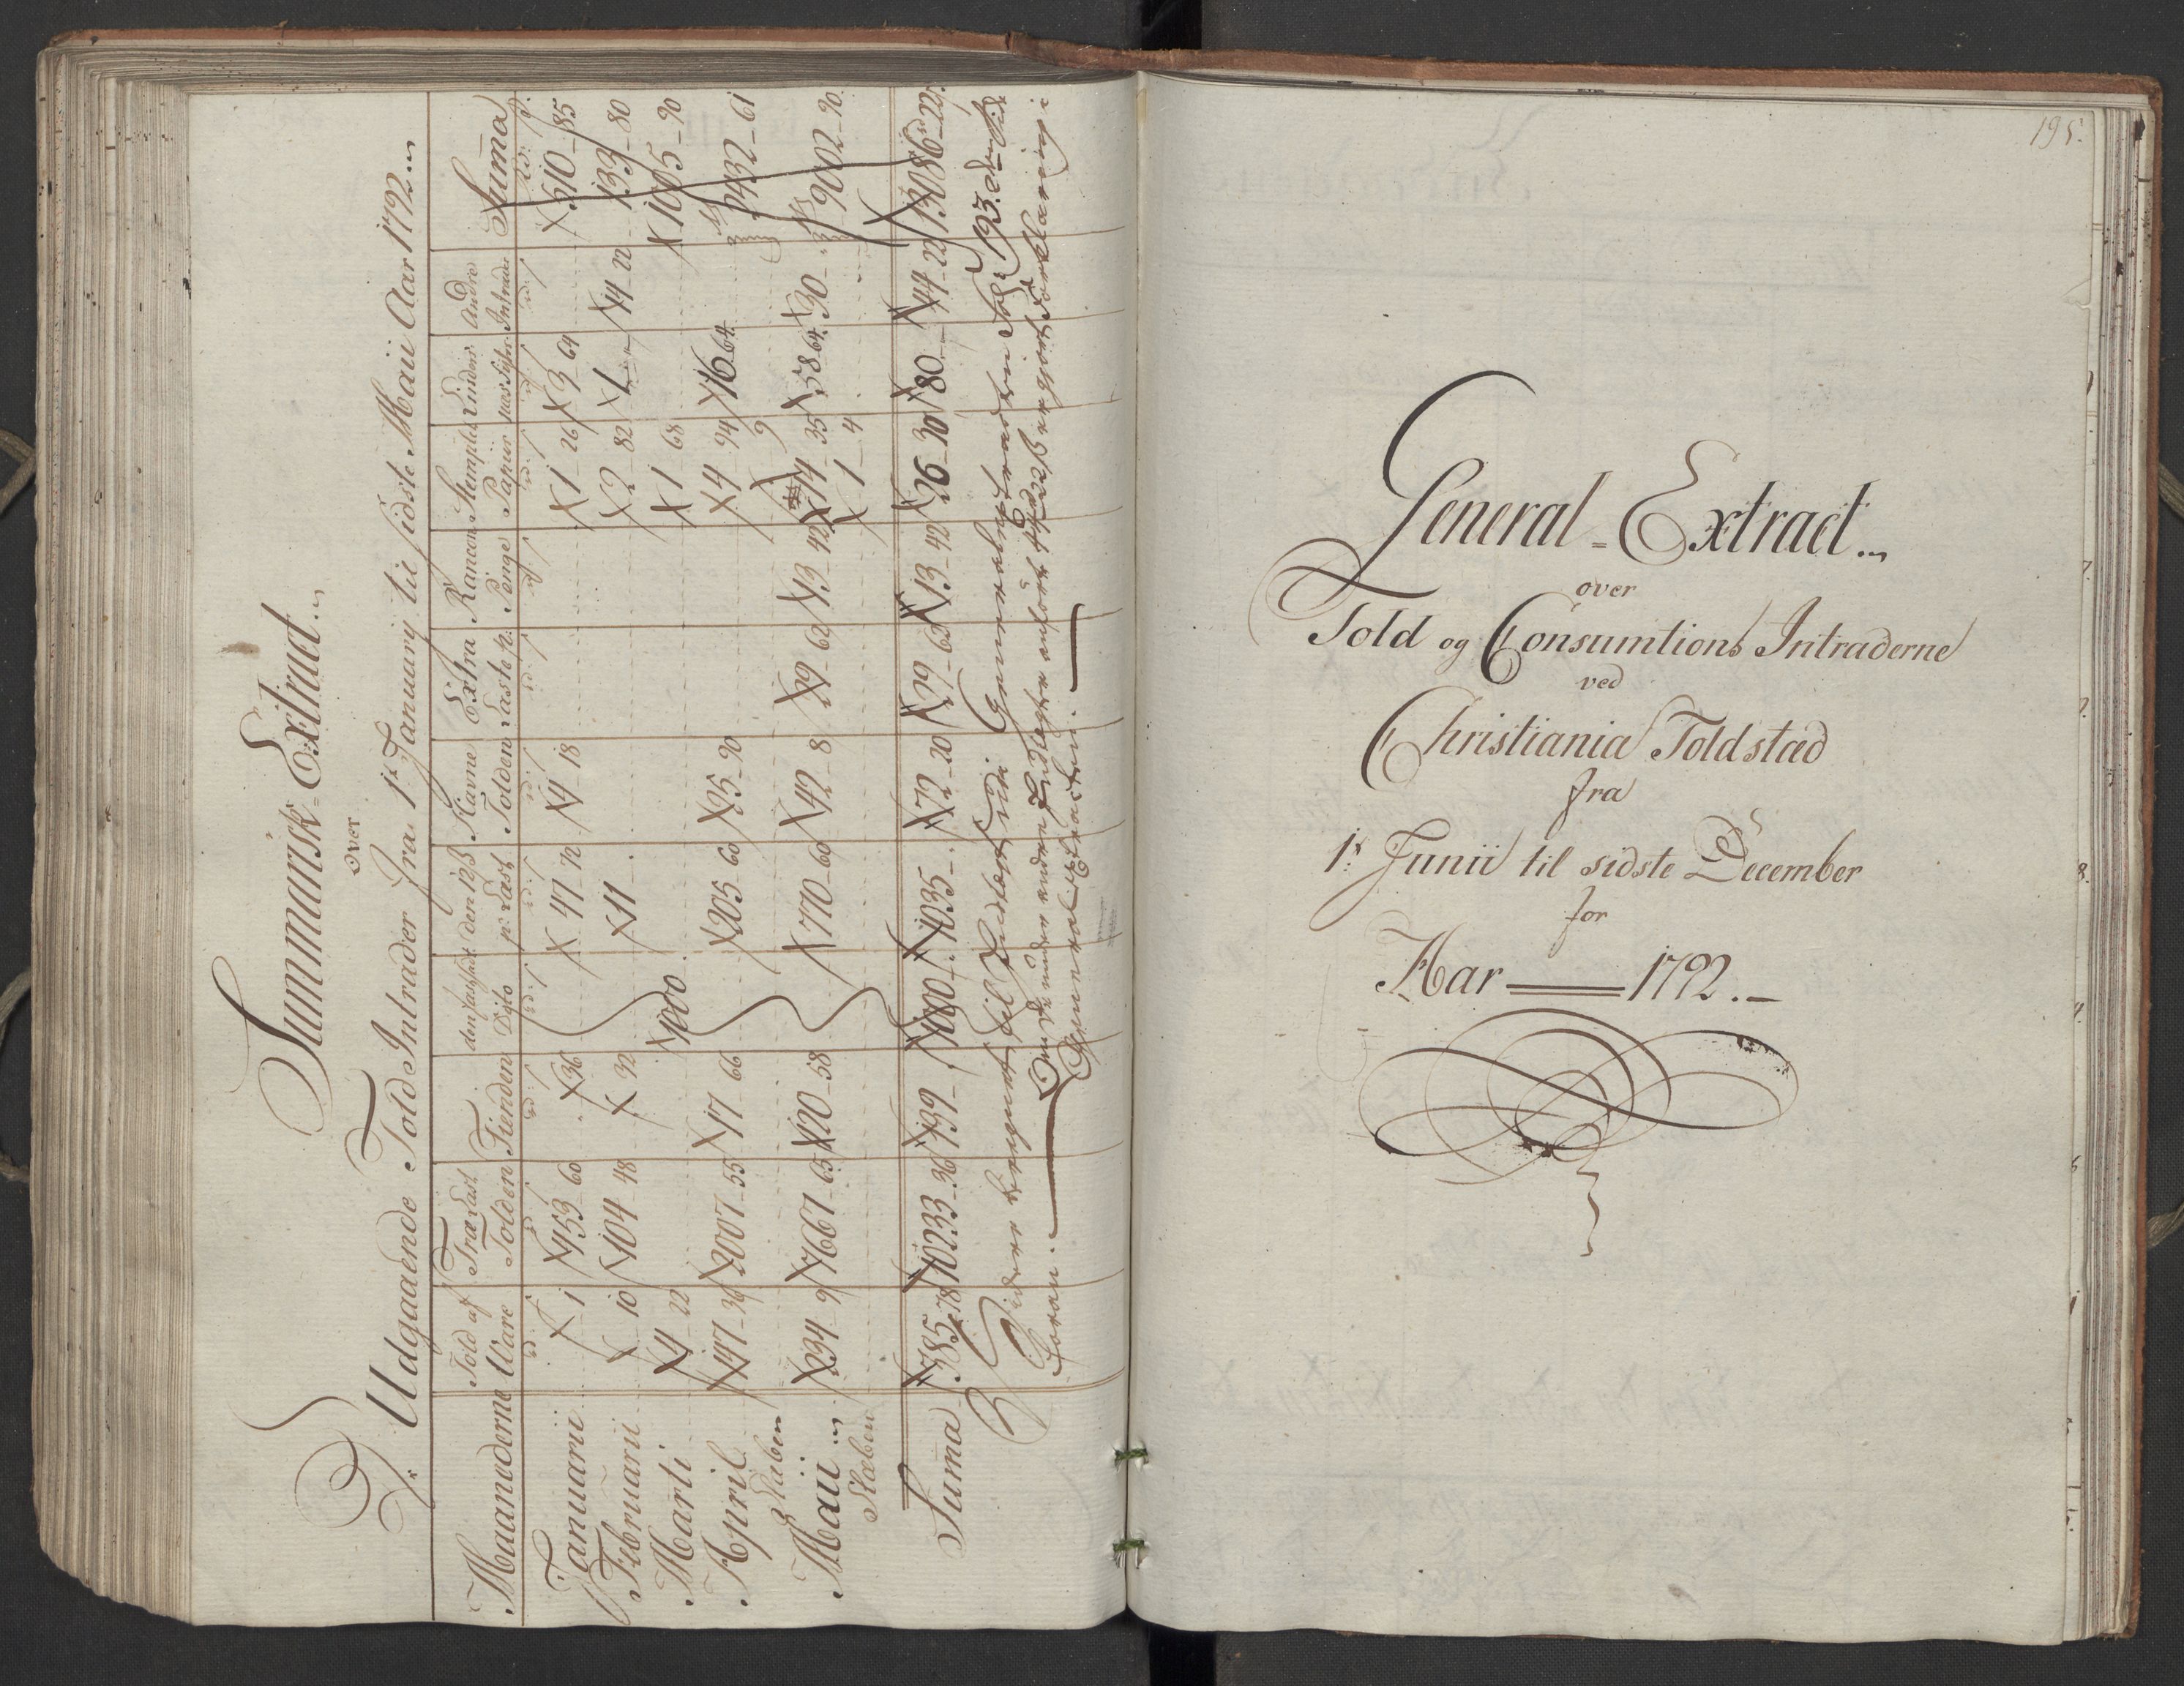 Summarisk Extract
over
Udgaaende Told Intrader fra 1t Januarij til sidste Maii Aar 1792
Maanederne | Told af Ware | Træ Last Tolden | Tienden | den fastsatte Dito | den 12 ß pr Læst | Havne Tolden | Extra Laste p: | Rancon Penge | Stemplet Papiir | | Andre Intrader | Summa
Januarii | 1 | 453 60 | 36 | | 47 72 | 4 18 | | | 1 26 | 3 64 | | 510 85
Februarii | 10 | 104 48 | 32 | | 11 | | | | 2 82 | 1 | 14 22 | 133 80
Marti | 4 22 | | | 1000 | | | | | 1 68 | | | 1005 90
April | 147 36 | 2007 55 | 17 66 | | 205 60 | 25 90 | | | 4 94 | 16 64 | | 2432 61
9
Maii | 234 9 | 7667 65 | 120 58 | | 770 60 | 42 8 | 29 62 | 13 42 | 14 35 | 58 64 | 30 | 9002 90
1 4
Suma | 385 78 | 10233 36 | 139 | 1000 | 1035 | 72 20 | 29 62 | 13 42 | 26 30 | 80 | 44 22 | 13086 22
foran
General Extracten
195.
General-Extract
over
Told og Consumtions Intraderne
ved
Christiania Toldstæd
fra
1t Junii til sidste December
for
Aar 1792.